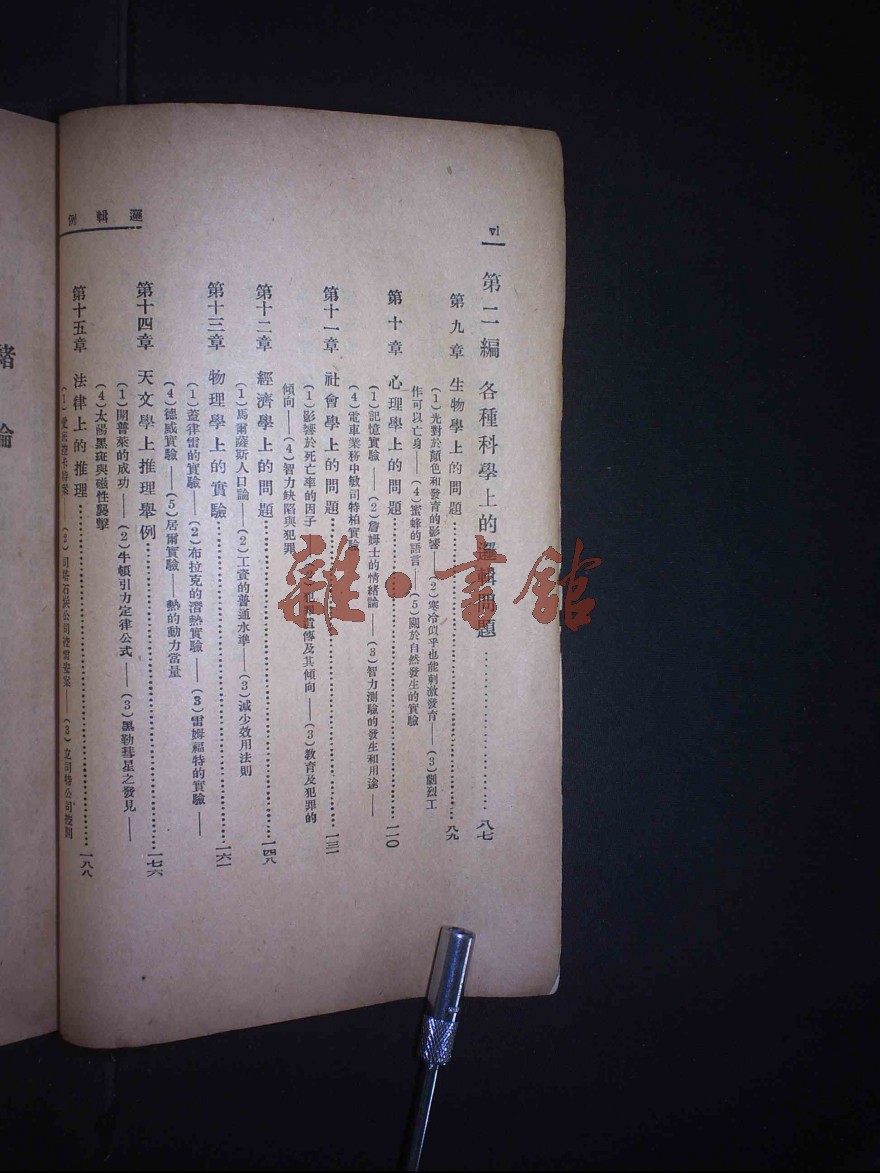 第二編 各種科學上的邏輯問題……八七
第九章 生物學上的問題……八九
(1)光對於顏色和發育的影響——(2)寒冷似乎也能刺激發育——(3)劇烈工
作可以亡身——(4)蜜蜂的語言——(5)關於自然發生的實驗
第十章 心理學上的問題……一二〇
(1)記憶實驗——(2)詹姆士的情緒論——(3)智力測驗的發生和用途——
(4)電車業務中敏司特柏實驗
第十一章 社會學上的問題……一三一
(1)影響於死亡率的因子 犯罪遺傳及其傾向——(3)教育及犯罪的
傾向——(4)智力缺陷與犯罪
第十二章 經濟學上的問題……一四八
(1)馬爾薩斯人口論——(2)工資的普通水準——(3)減少效用法則
第十三章 物理學上的實驗……一六一
(1)蓋律雷的實驗——(2)布拉克的潛熱實驗——(3)雷姆福特的實驗——
(4)德威實驗——(5)居爾實驗——熱的動力當量
第十四章 天文學上推理舉例……一七六
(1)開普萊的成功——(2)牛頓引力定律公式——(3)黑勒彗星之發見——
(4)太陽黑斑與磁性襲擊
第十五章 法律上的推理……一八八
(3)立司特公司控開
邏輯例
緒論
雜·書館